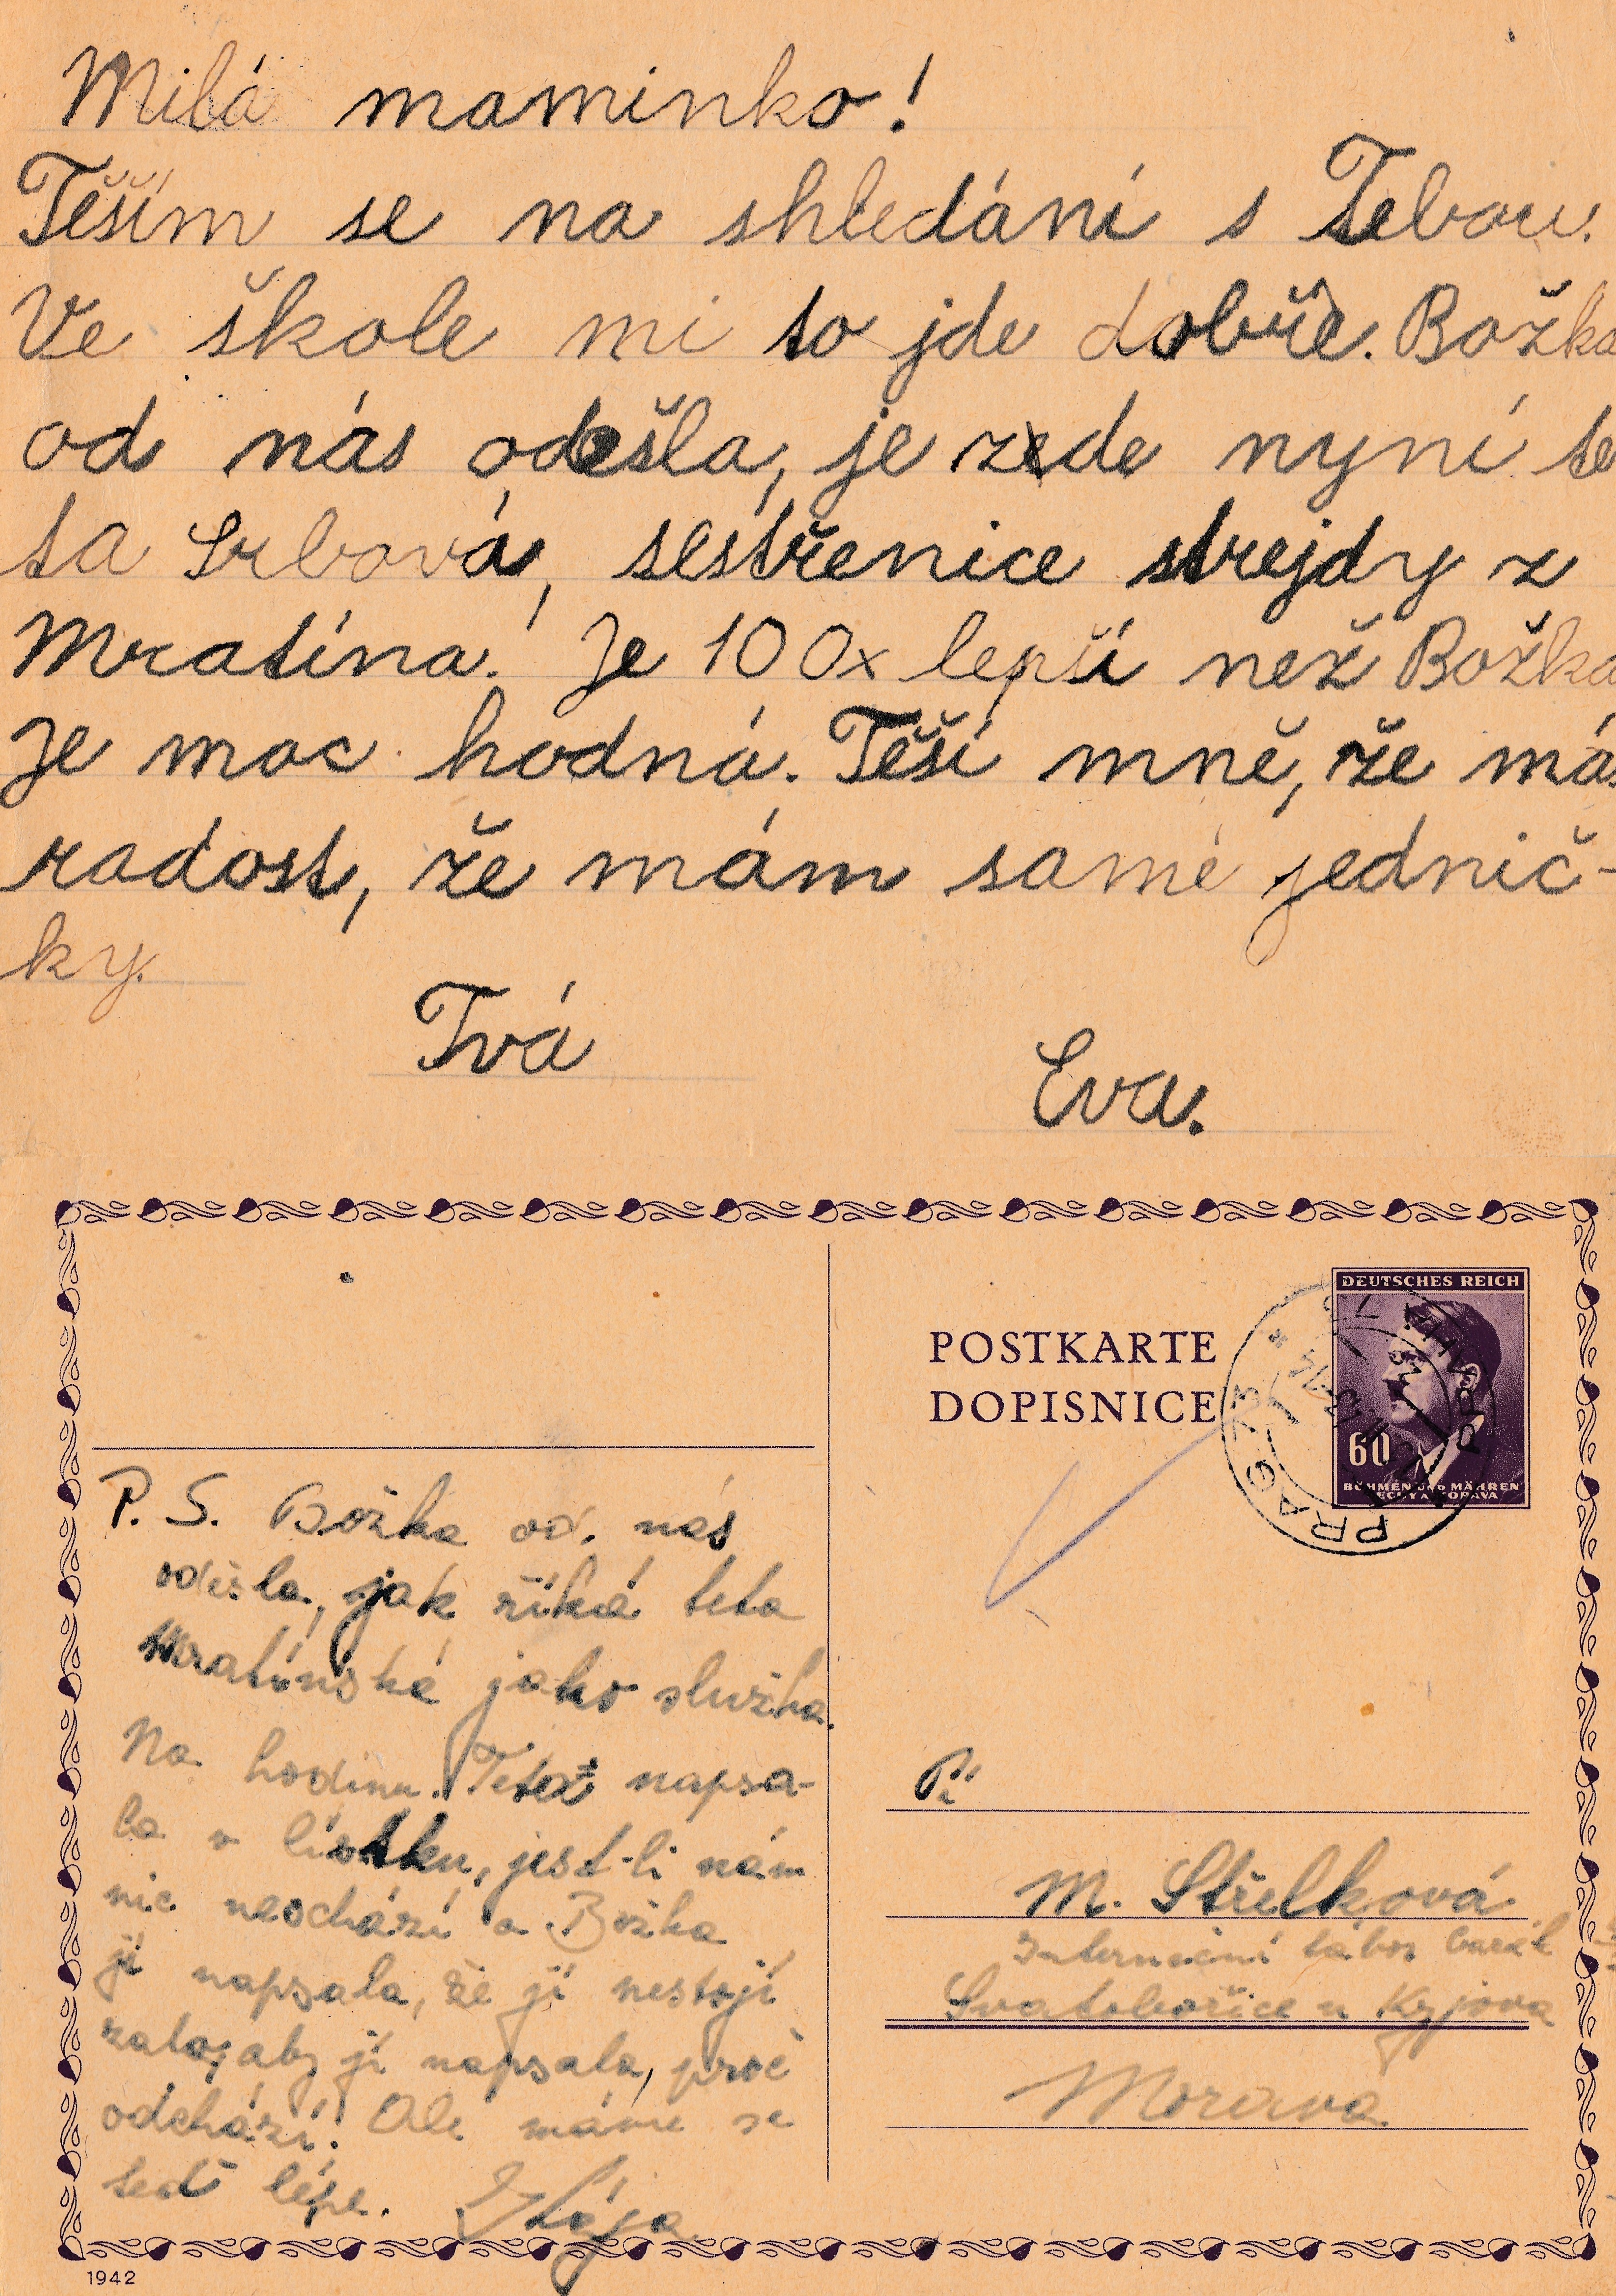 Milá maminko!
Těším se na shledání s Tebou.
Ve škole mi to jde dobře. Božka
od nás odešla, je zde nyní te
ta Srbová, sestřenice strejdy z
Mratína. Je 100x lepší než Božka
Je moc hodná. Těší mně, že máš
radost, že mám samé jednič-
ky.
Tvá
Eva.
P. S. Božka od nás
odešla, jak říká teta
Mratínská jako služka.
Na hodinu. Teta napsa-
la v lístku, jest-li nám
nic neschází a Božka
jí napsala, že jí nestojí
zato, aby jí napsala, proč
odchází! Ale máme se
teď lépe. Hája
POSTKARTE
DOPISNICE
DEUTSCHES REICH
60
BÖHMEN UND MÄHREN
ČECHY A MORAVA
PRAG 73
PRAHA 73
Pí
M. Střelková
Internační tábor barák
Svatobořice u Kyjova
Morava
1942